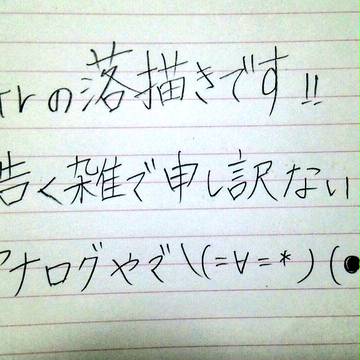 の落描きです!!
く雑で申し訳ない
アナログやで\(=∀=*)(●